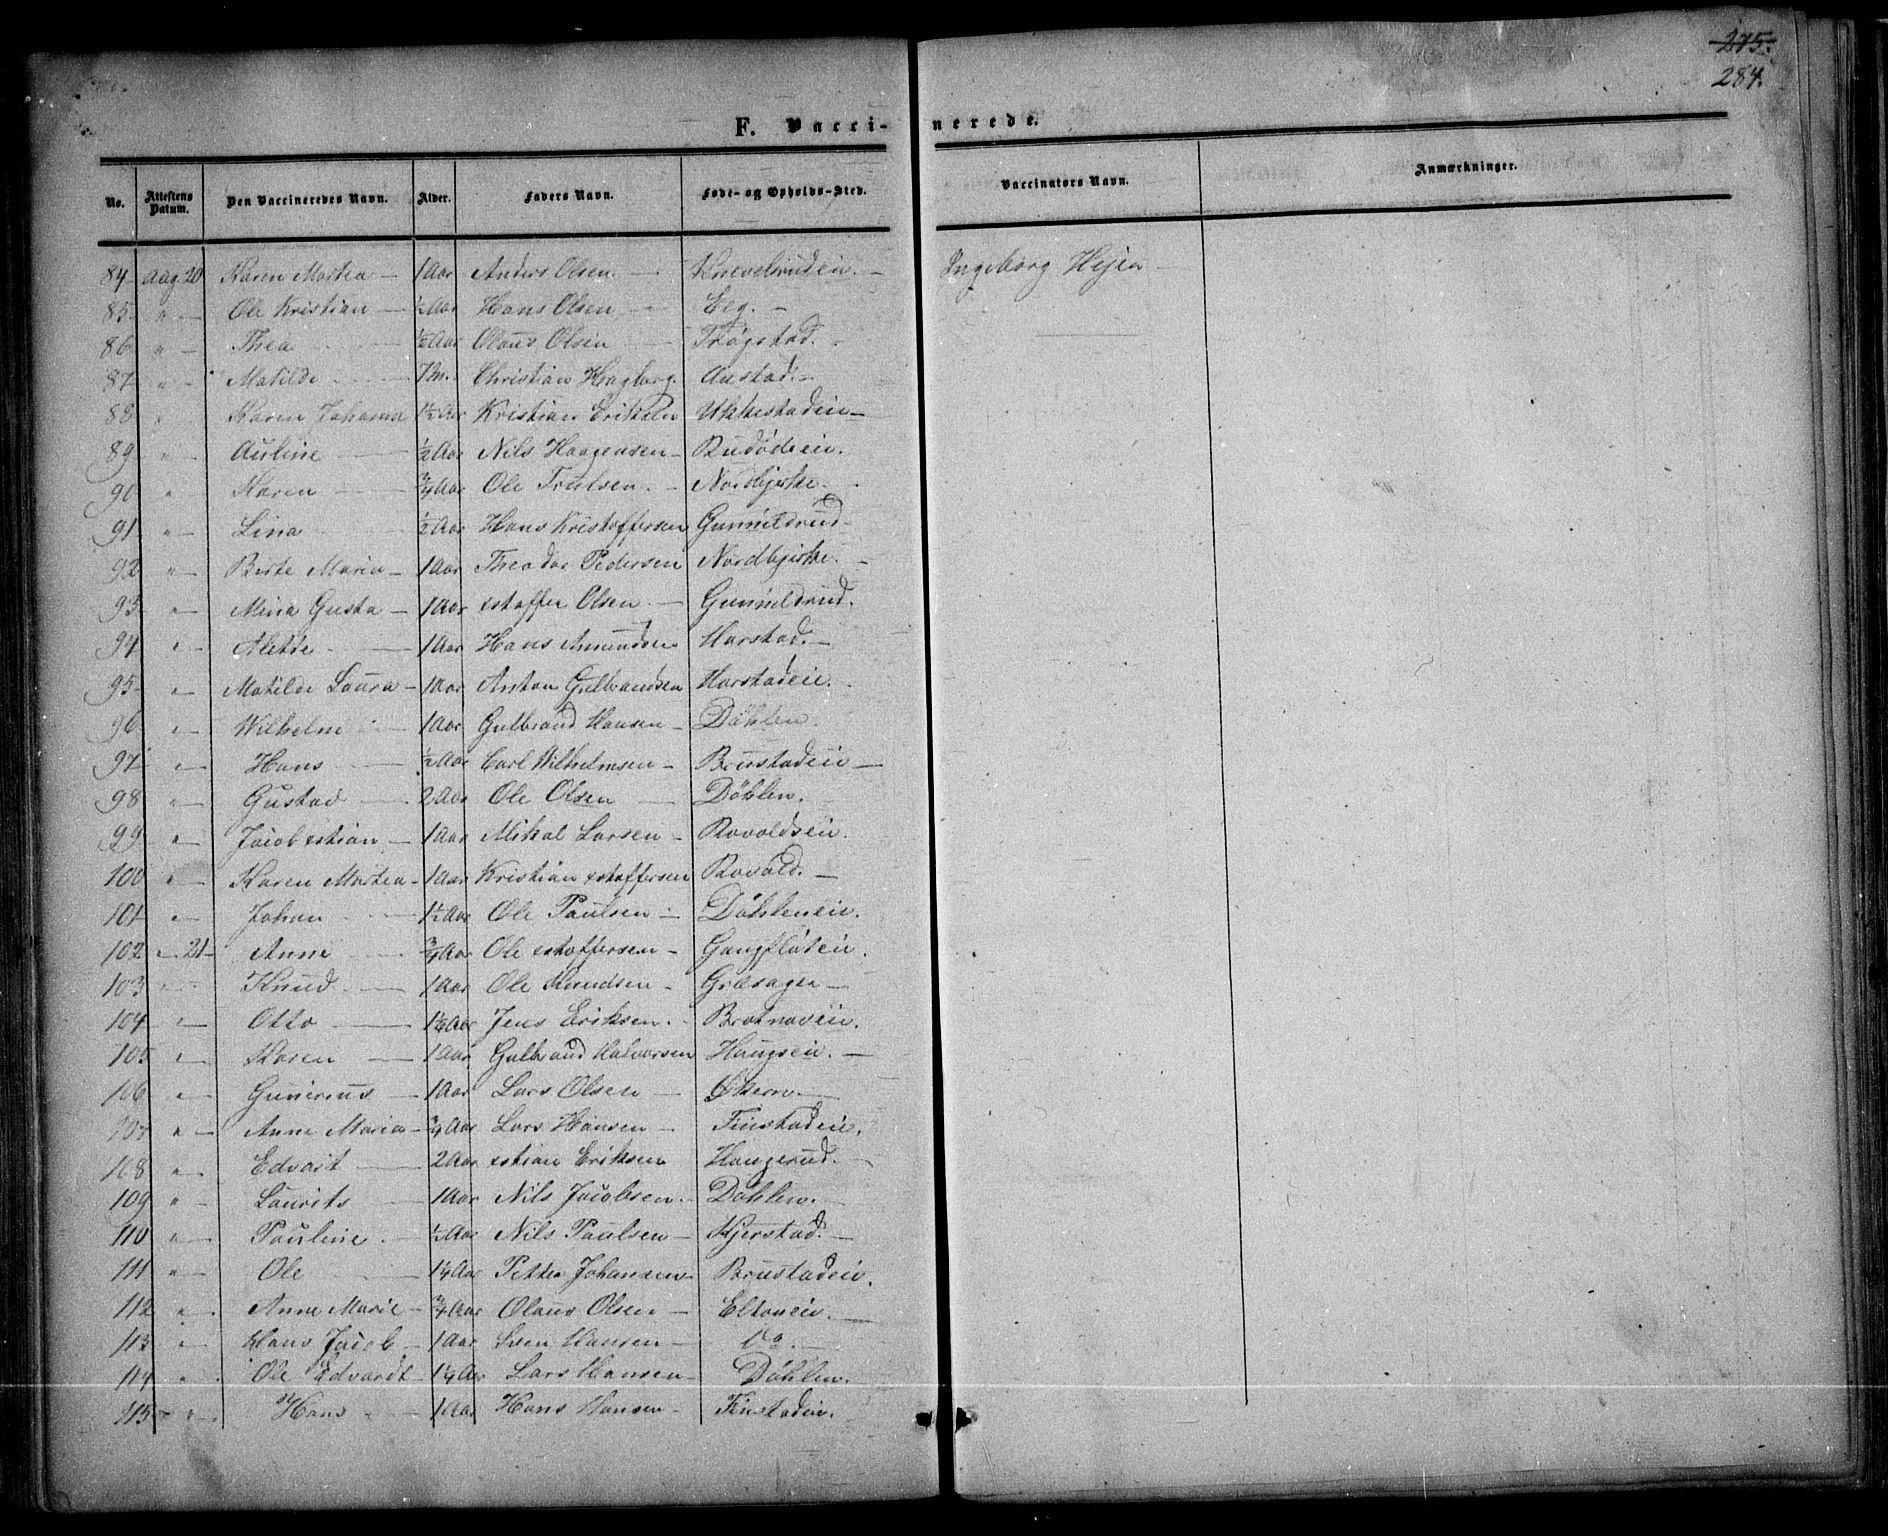 275.
284.
F. Vacci- nerede.
No. Attestens Datum. Den Vaccineredes Navn. Alder. Faders Navn. Føde- og Opholds-Sted. Vaccinators Navn. Anmærkninger.
84 Aug 20 Karen Martea — 1 Aar Anders Olsen. — Knevelsrudeie. — Ingeborg Hejer
85 " — Ole Kristian — ½ Aar Hans Olsen — Eeg. —
86 " — Thea — ½ Aar Olaus Olsen — Frøgstad. —
87 " — Matilde — 7 M. Christian Hagberg. Austad. —
88 " Karen Johanne 1½ Aar Kristian Eriksen Ukkestadeie —
89 " — Auline — ½ Aar Nils Haagensen — Rudødeie.
90 " — Karen — ¾ Aar Ole Trulsen. — Nordbykirke. —
91 " — Lina ½ Aar Hans Kristoffersen Gunnildrud —
92 " — Berte Maria — 1 Aar Theodor Pedersen Nordbykirke. —
93 " — Mina Gusta — 1 Aar xstoffer Olsen. — Gunnildrud.
94 " — Alette — 1 Aar Hans Amundsen Harstad. —
95 " — Matilde Laura — 1 Aar Anton Gulbrandsen Harstadeie.
96 " — Wilhelm 1 Aar Gulbrand Hansen — Døhlen.
97 " — Hans — ½ Aar Carl Wilhelmsen — Brustadeie —
98 " — Gustav — 2 Aar Ole Olsen — Døhlen.
99 " — Jacob xstian — 1 Aar Mikal Larsen — Rovoldseie.
100 " — Karen Martea — 1 Aar Kristian xstoffersen Rovold. —
101 " — Johan — 1½ Aar Ole Paulsen — Døhleneie.
102 " 21 — Anne ¾ Aar Ole xstoffersen — Gangfløteie.
103 " — Knud — 1 Aar Ole Knudsen — Græsager —
104 " — Otto — 1½ Aar Jens Eriksen. — Brotnoveie.
105 " — Karen — 1 Aar Gulbrand Halvorsen Haugseie. —
106 " — Gunerius — 1 Aar Lars Olsen — Økern. —
107 " — Anne Maria — ¾ Aar Lars Hansen — Finstadeie.
108 " — Edvart — 2 Aar xstian Eriksen Haugerud. —
109 " — Laurits — 1 Aar Nils Jacobsen. Døhlen. —
110 " — Pauline. — ½ Aar Nils Paulsen — Kjerstad. —
111 " — Ole — 1¼ Aar Petter Johansen Brustadeie.
112 " — Anne Marie — ¾ Aar Olaus Olsen — Eltoneie. —
113 " — Hans Jacob — 1 Aar Sven Hansen — Do. —
114 " Ole Edvardt 1¼ Aar Lars Hansen — Døhlen.
115 — " — Hans — 1 Aar Hans Hansen — Finstadeie.